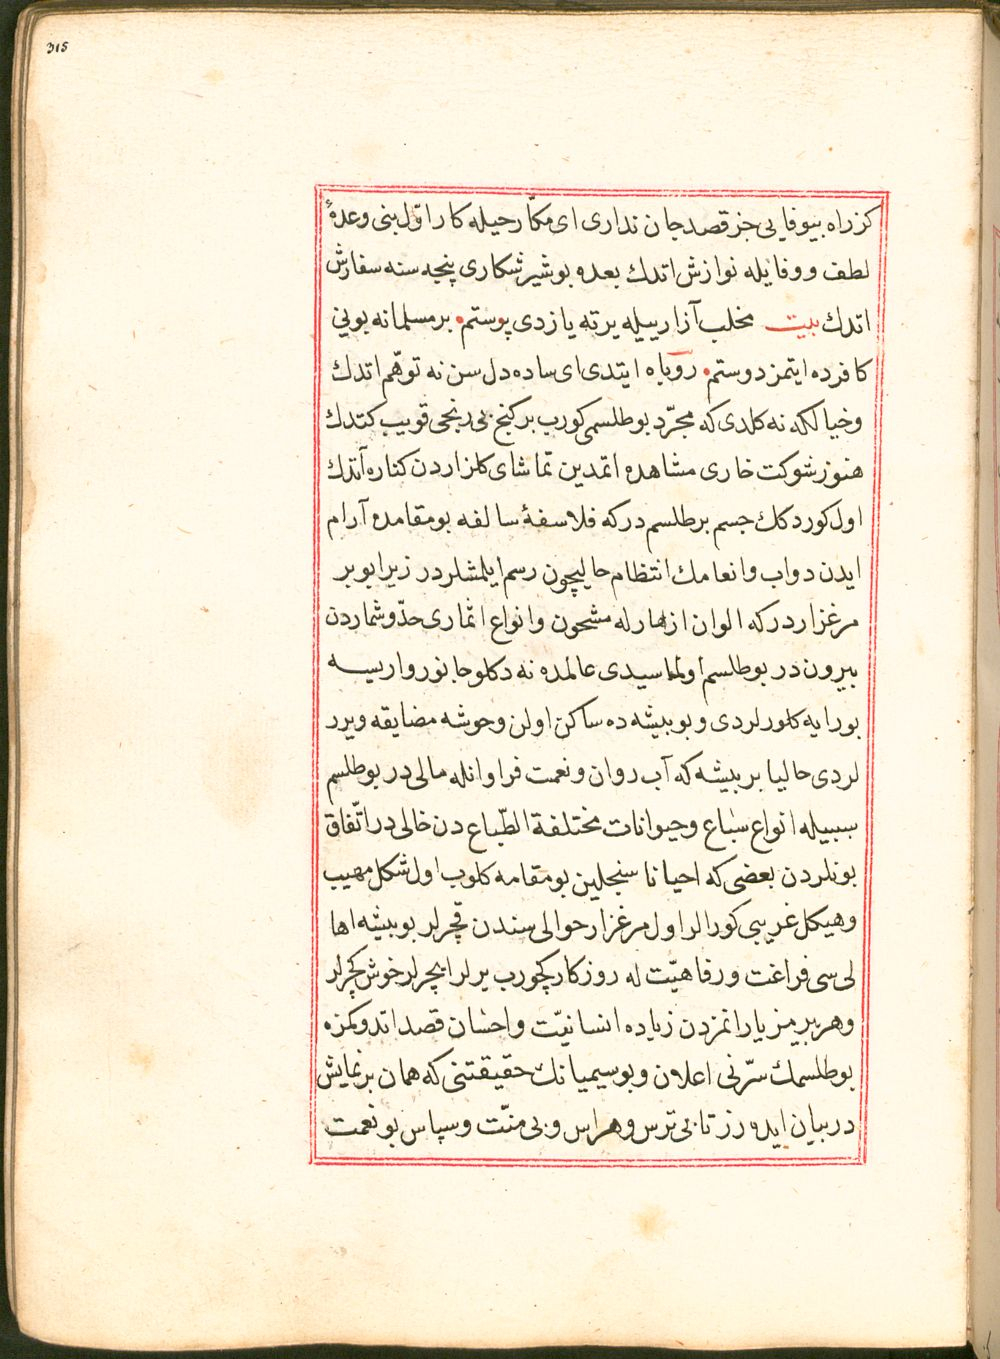 315
كز راه بيوفايى جز قصد جان ندارى اى مكّار حيله كار اوّل بنى وعدهٔ
لطف و وفايله نوازش اتدك بعده بو شير شكارى پنجه سنه سفارش
اتدك بيت مخلب آزار يىيله يرته يازدى پوستم • بر مسلمانه بونى
كافرده ايتمز دوستم • روباه ايتدى اى ساده دل سن نه توهّم اتدك
وخيالكه نه كلدى كه مجرّد بو طلسمى كورب بر كنج بى رنجى قويب كتدك
هنوز شوكت خارى مشاهده اتمدين تماشاى كلزاردن كناره اتدك
اول كوردكك جسم بر طلسم دركه فلاسفهٔ سالفه بو مقامده آرام
ايدن دواب وانعامك انتظام حاليچون رسم ايلمشلردر زيرا بو بر
مرغزاردركه الوان ازهارله مشحون وانواع اثمارى حدّ وشماردن
بيروندر بو طلسم اولماسيدى عالمده نه دكلو جانور واريسه
بورايه كلورلردى وبو بيشه ده ساكن اولن وحوشه مضايقه ويرر
لردى حاليا بر بيشه كه آب روان ونعمت فراوانله مالى در بو طلسم
سببيله انواع سباع وحيوانات مختلفة الطّباع دن خالى در اتّفاق
بونلردن بعضى كه احيانا سنجلين بو مقامه كلوب اول شكل مهيب
وهيكل غريبى كورالر اول مرغزار حوالى سندن قچرلر بو بيشه اها
لى سى فراغت ورفاهيّت له روزكار كچورب يرلر ايچرلر خوش كچرلر
وهر بريمز يارانمزدن زياده انسانيّت واحسان قصد اتدوكمزه
بو طلسمك سرّنى اعلان وبو سيميانك حقيقتنى كه همان بر نمايش
در بيان ايده رز تا بى ترس وهراس وبى منّت وسپاس بو نعمت